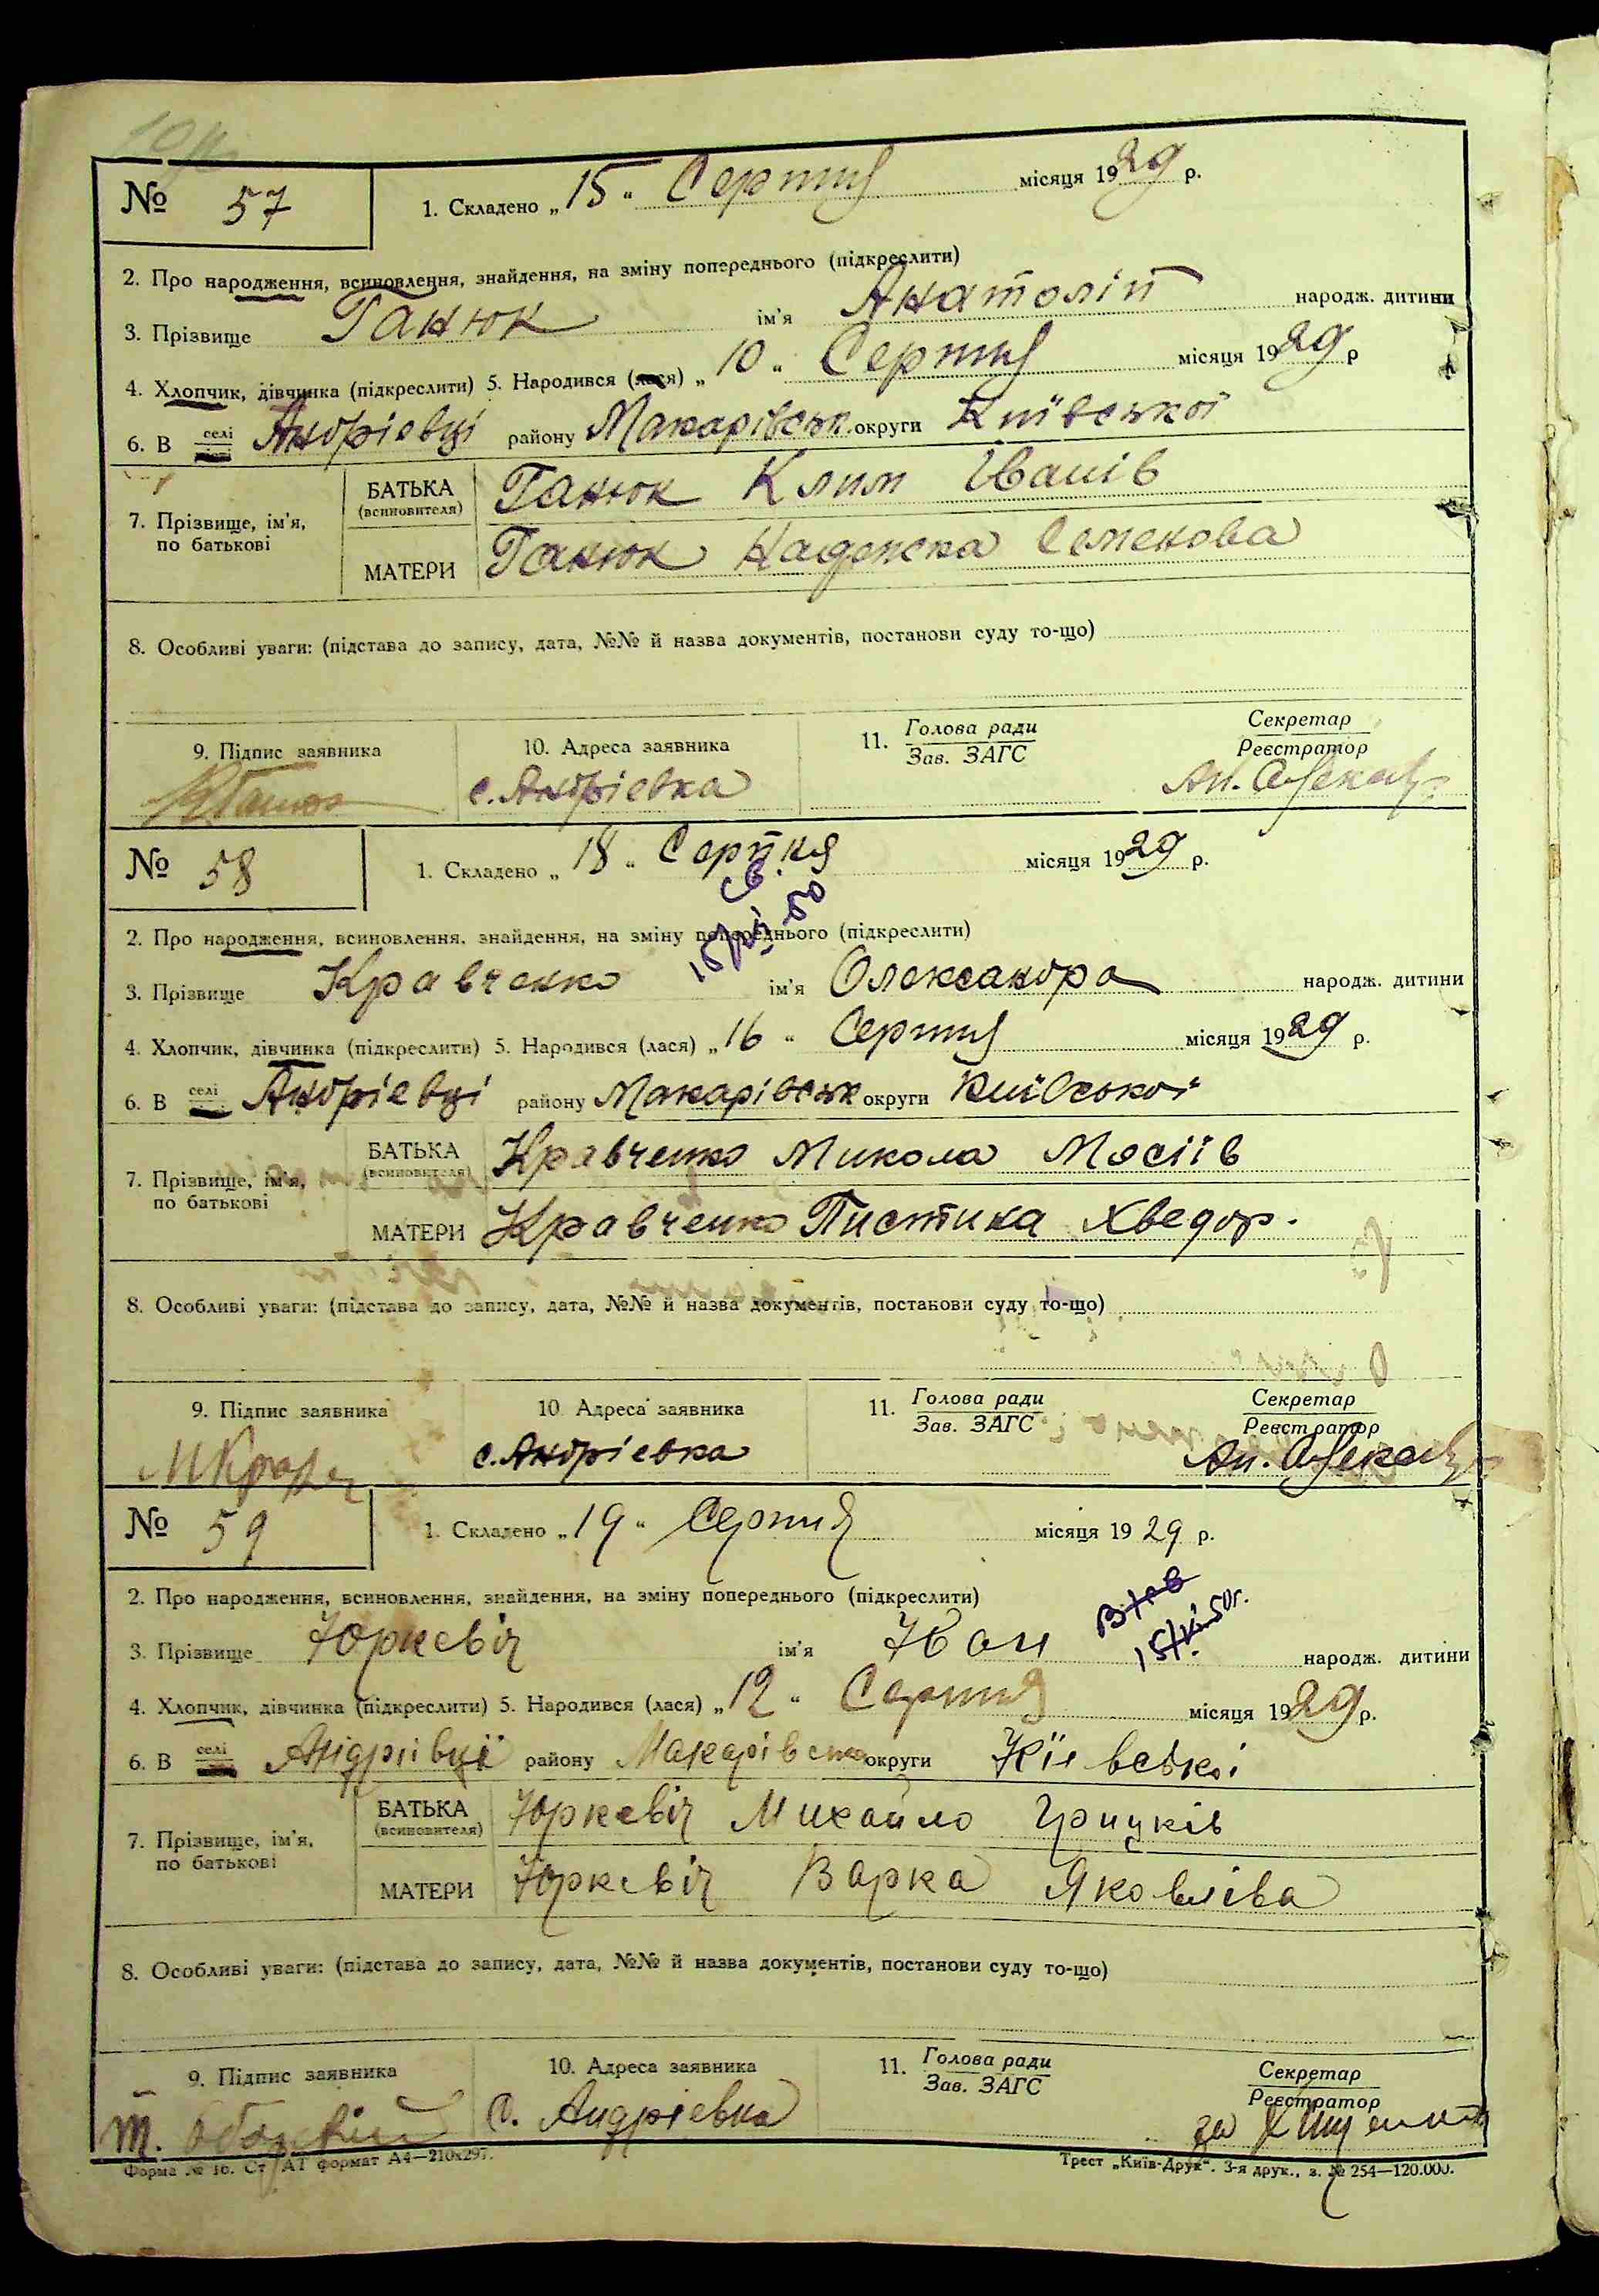 № 57
1. Складено „15“ Серпня місяця 1929 р.
2. Про народження, всиновлення, знайдення, на зміну попереднього (підкреслити)
3. Прізвище Ганюк ім'я Анатолій народж. дитини
4. Хлопчик, дівчинка (підкреслити) 5. Народився (лася) „10“ Серпня місяця 1929 р
6. В селі Андрієвці району Макарівськ. округи Київської
7. Прізвище, ім'я, по батькові
БАТЬКА (всиновителя) Ганюк Клим Іванів
МАТЕРИ Ганюк Надежка Семенова
8. Особливі уваги: (підстава до запису, дата, №№ й назва документів, постанови суду то-що)
9. Підпис заявника
10. Адреса заявника
11. Голова ради
Зав. ЗАГС
Секретар
Реєстратор
с. Андрієвка
№ 58
1. Складено „18“ Серпня місяця 1929 р.
2. Про народження, всиновлення, знайдення, на зміну попереднього (підкреслити)
3. Прізвище Кравченко ім'я Олександра народж. дитини
4. Хлопчик, дівчинка (підкреслити) 5. Народився (лася) „16“ Серпня місяця 1929 р.
6. В селі Андрієвці району Макарівськ округи Київської
7. Прізвище, ім'я, по батькові
БАТЬКА (всиновителя) Кравченко Микола Мосіїв
МАТЕРИ Кравченко Пистина Хведор.
8. Особливі уваги: (підстава до запису, дата, №№ й назва документів, постанови суду то-що)
9. Підпис заявника
10 Адреса заявника
11. Голова ради
Зав. ЗАГС
Секретар
Реєстратор
с. Андрієвка
№ 59
1. Складено „19“ Серпня місяця 1929 р.
2. Про народження, всиновлення, знайдення, на зміну попереднього (підкреслити)
3. Прізвище Юркевіч ім'я Іван народж. дитини
4. Хлопчик, дівчинка (підкреслити) 5. Народився (лася) „12“ Серпня місяця 1929 р.
6. В селі Андріівці району Макарівська округи Київської
7. Прізвище, ім'я, по батькові
БАТЬКА (всиновителя) Юркевіч Михайло Грицків
МАТЕРИ Юркевіч Варка Яковлєва
8. Особливі уваги: (підстава до запису, дата, №№ й назва документів, постанови суду то-що)
9. Підпис заявника
10. Адреса заявника
11. Голова ради
Зав. ЗАГС
Секретар
Реєстратор
с. Андрієвка
Форма № 16. Ст АТ формат А4—210х297.
Трест „Київ-Друк“. 3-я друк., з. № 254—120.000.